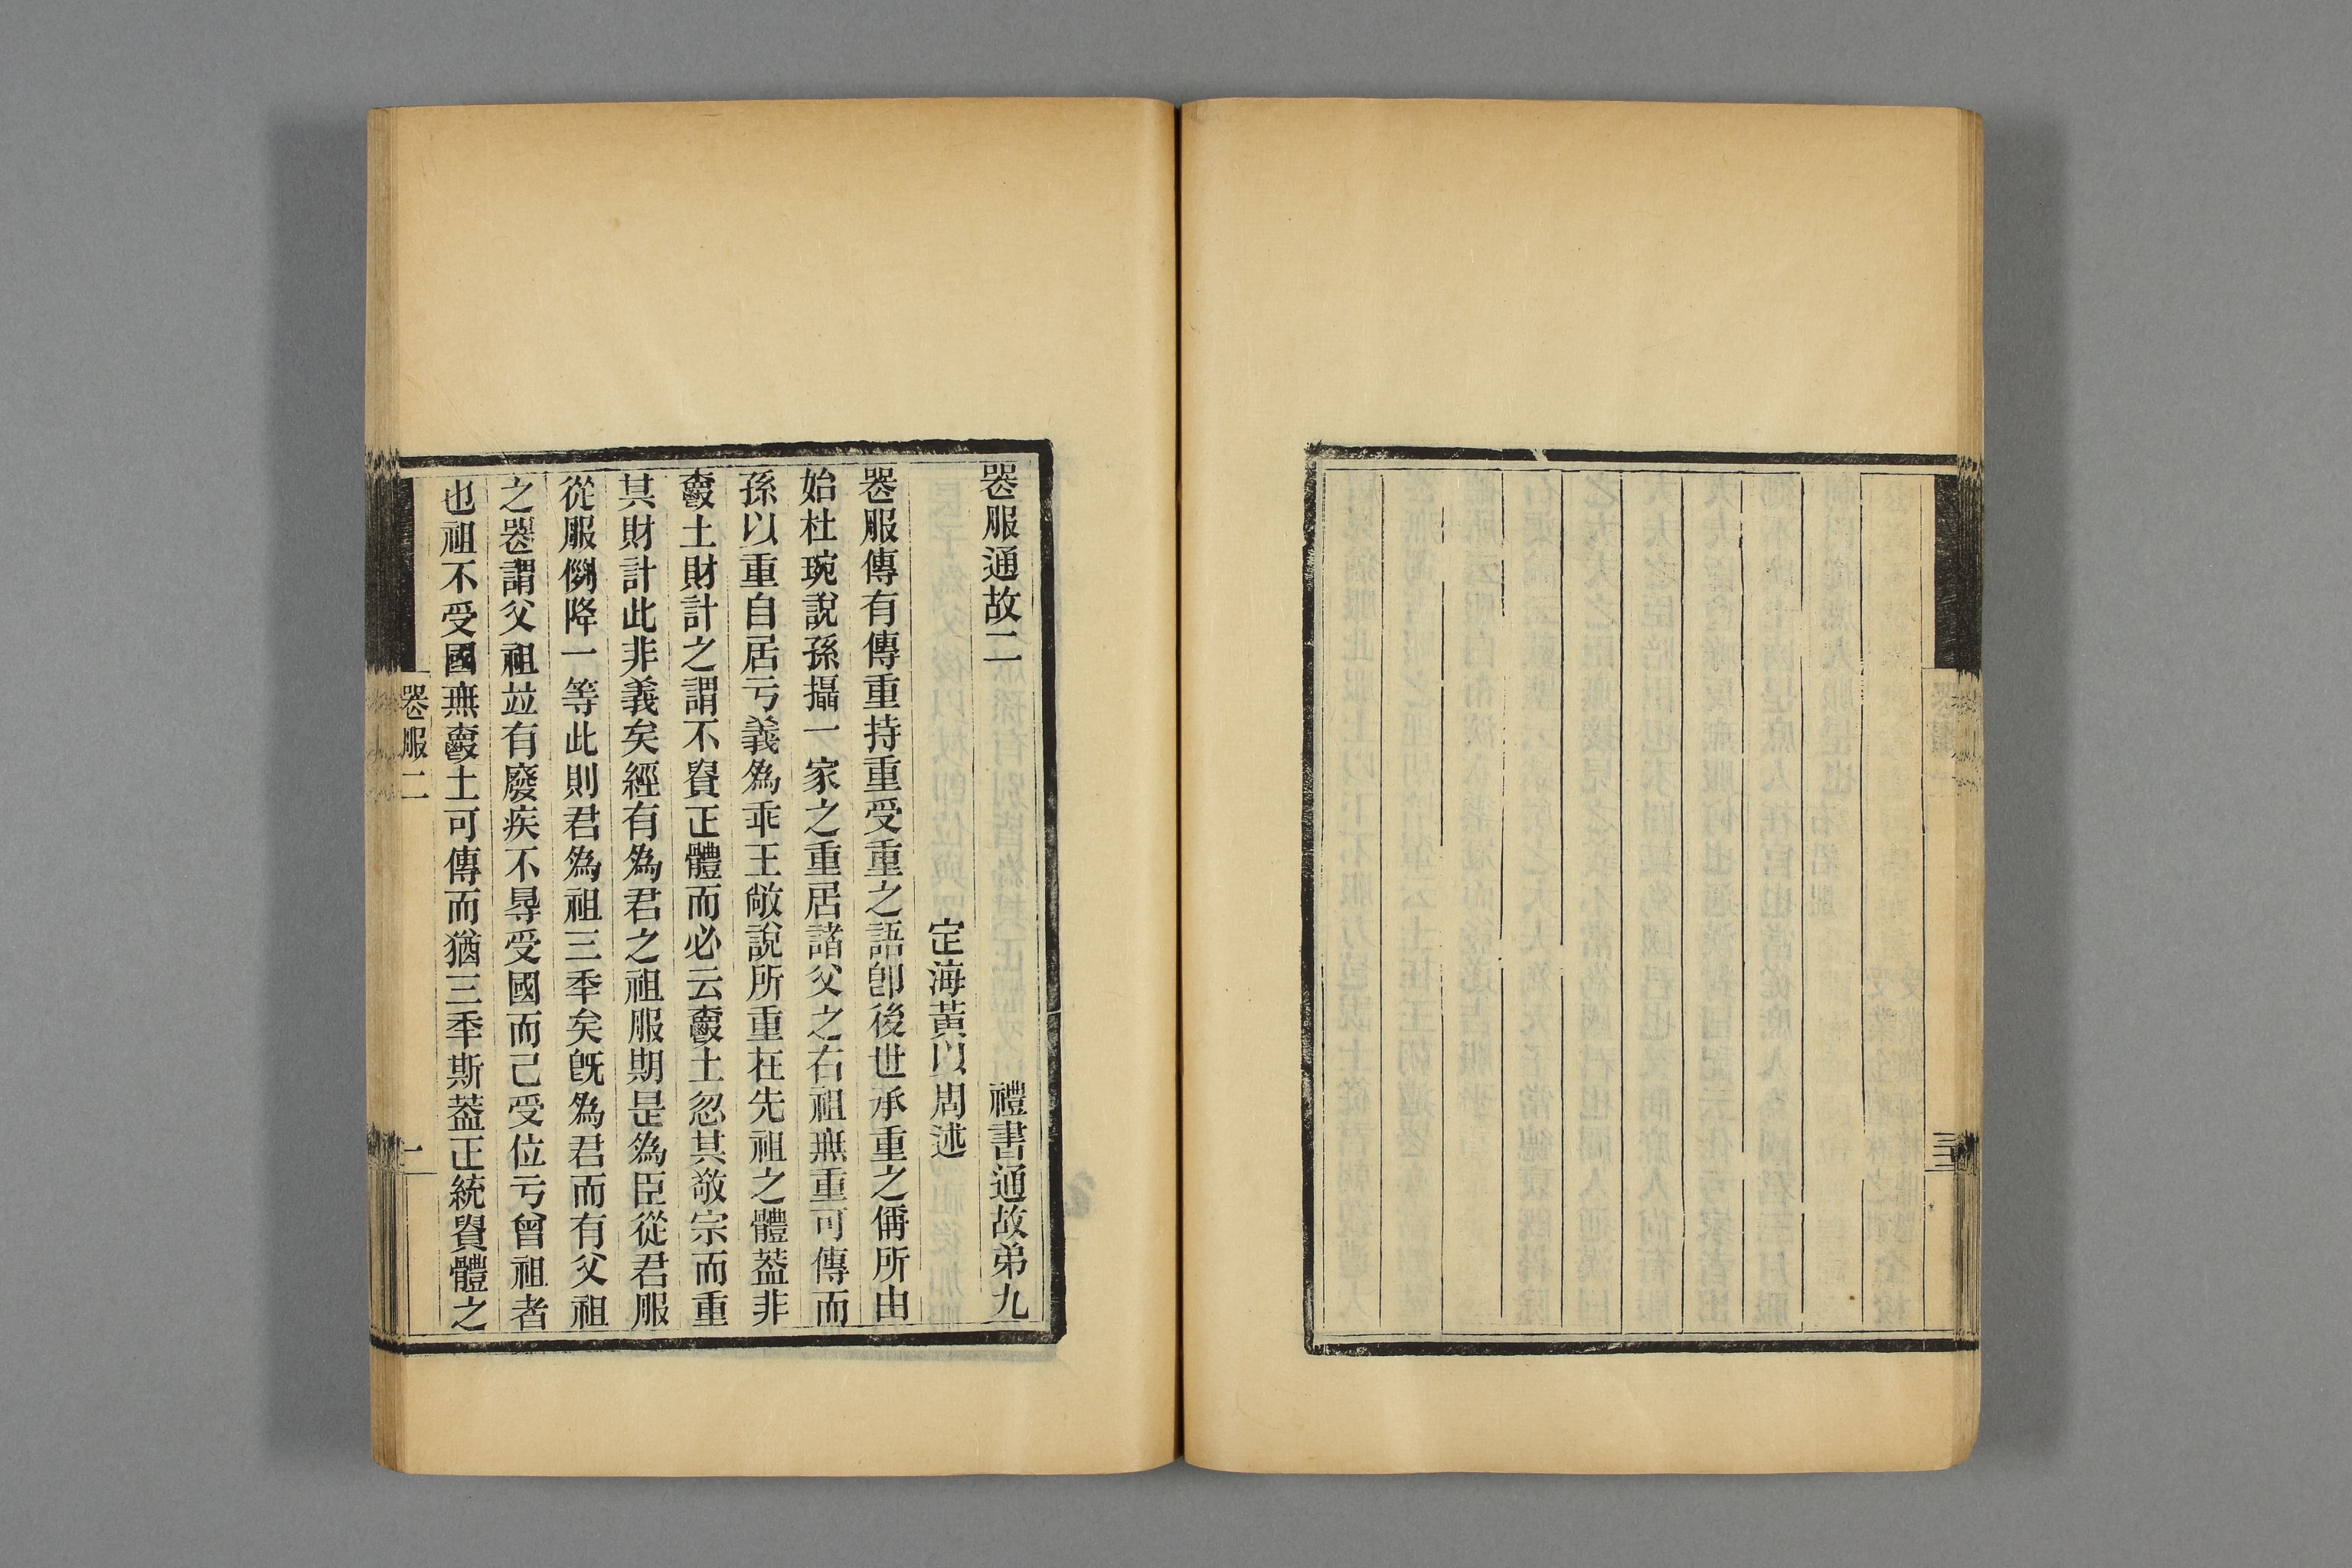 喪服通故二　禮書通故弟九
定海黃以周述
喪服傳有傳重持重受重之語卽後世承重之偁所由
始杜琬說孫攝一家之重居諸父之右祖無重可傳而
孫以重自居亏義爲乖王敞說所重在先祖之體葢非
𧶠土財計之謂不貴正體而必云𧶠土忽其敬宗而重
其財計此非義矣經有爲君之祖服期是爲臣從君服
從服例降一等此則君爲祖三秊矣旣爲君而有父祖
之喪謂父祖竝有廢疾不㝵受國而己受位亏曾祖者
也祖不受國無𧶠土可傳而猶三秊斯葢正統貴體之
喪服二
一